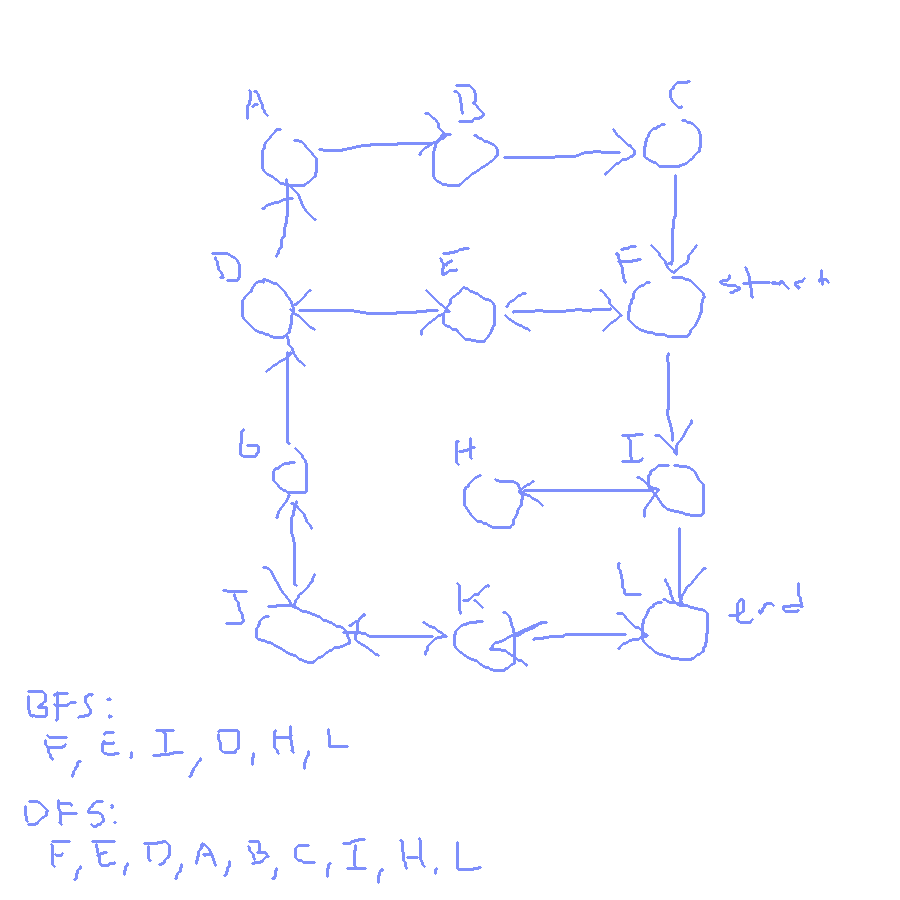 A B C
D E F start
G H I
J K L end
BFS:
F, E, I, D, H, L
DFS:
F, E, D, A, B, C, I, H, L